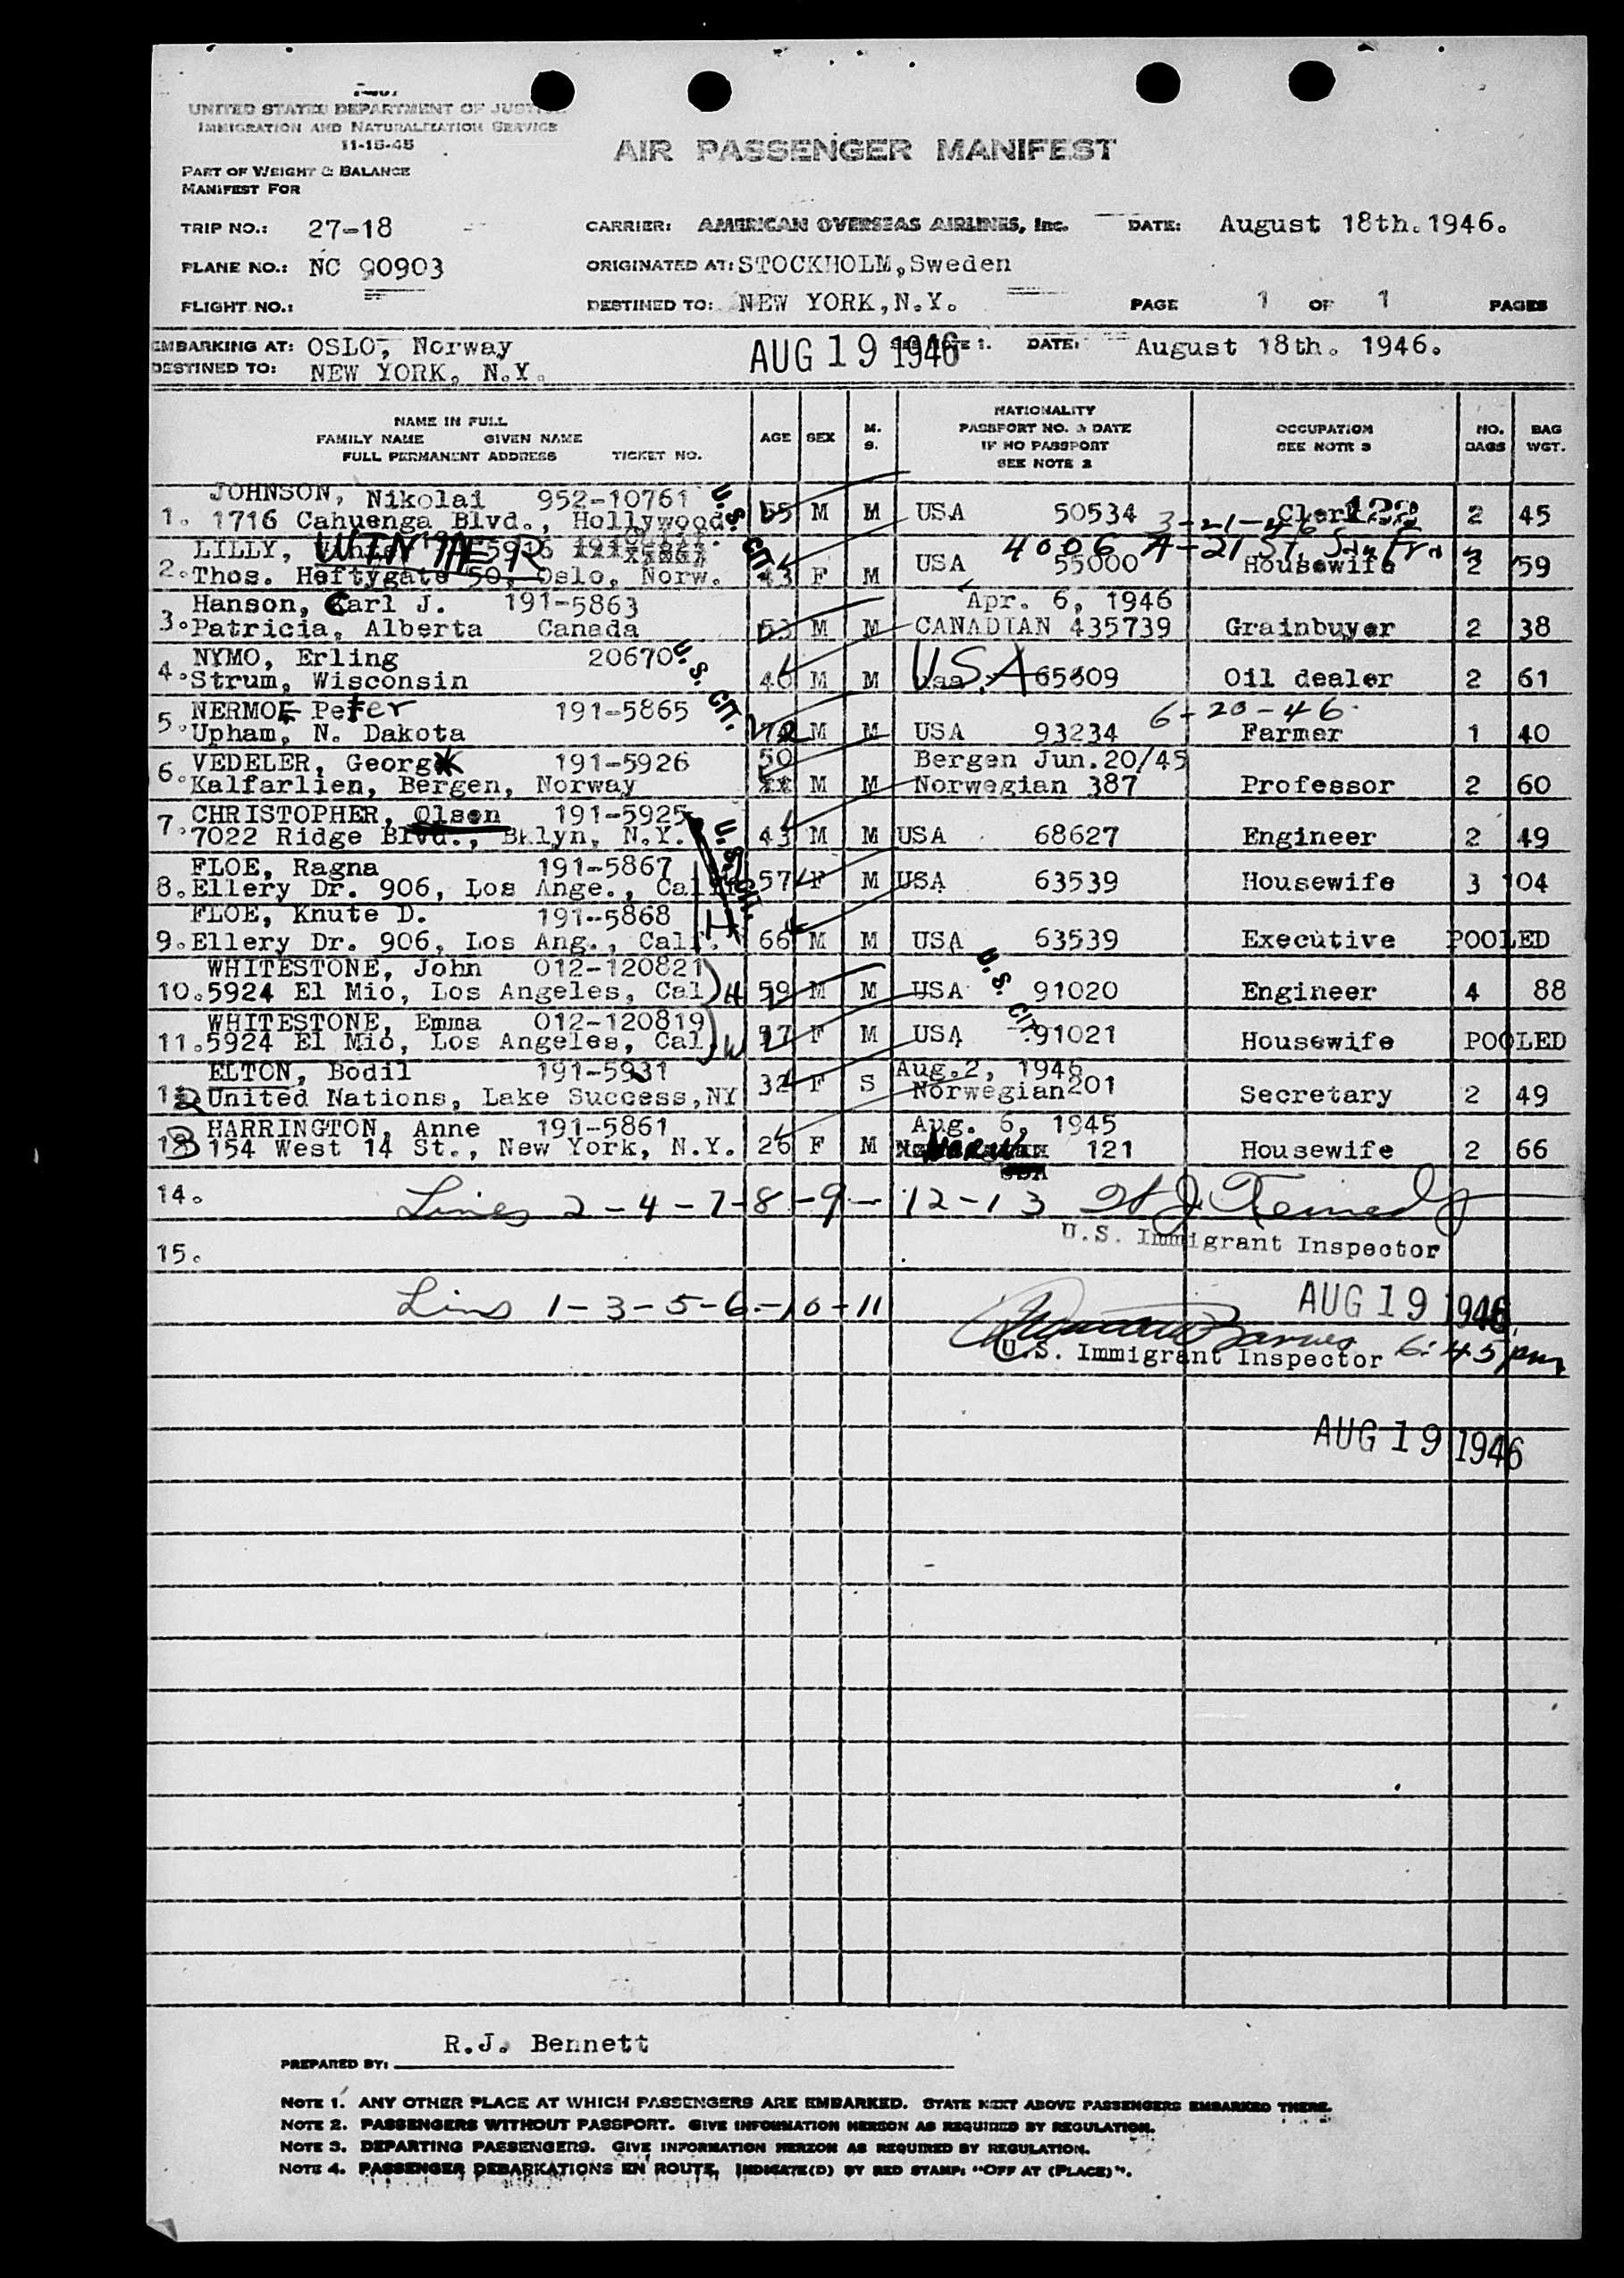 UNITED STATES DEPARTMENT OF JUSTICE
IMMIGRATION AND NATURALIZATION SERVICE
11-15-45
AIR PASSENGER MANIFEST
PART OF WEIGHT & BALANCE
MANIFEST FOR
TRIP NO.: 27-18 CARRIER: AMERICAN OVERSEAS AIRLINES, Inc. DATE: August 18th. 1946.
PLANE NO.: NC 90903 ORIGINATED AT: STOCKHOLM, Sweden
FLIGHT NO.: DESTINED TO: NEW YORK, N.Y. PAGE 1 OF 1 PAGES
EMBARKING AT: OSLO, Norway AUG 19 1946 SEE NOTE 1. DATE: August 18th. 1946.
DESTINED TO: NEW YORK, N.Y.
NAME IN FULL
FAMILY NAME GIVEN NAME
FULL PERMANENT ADDRESS TICKET NO.
AGE SEX M. S.
NATIONALITY
PASSPORT NO. & DATE
IF NO PASSPORT
SEE NOTE 2
OCCUPATION
SEE NOTE 3
NO. BAGS
BAG WGT.
JOHNSON, Nikolai 952-10761 U.S. CIT.
1. 1716 Cahuenga Blvd., Hollywood 55 M M USA 50534 Clerk 122 2 45
3-21-46
LILLY, WINTHER 4006 A-21 St. San Fran
2. Thos. Heftygate 50, Oslo, Norw. 43 F M USA 55000 Housewife 2 59
Hanson, Carl J. 191-5863 Apr. 6, 1946
3. Patricia, Alberta Canada 53 M M CANADIAN 435739 Grainbuyer 2 38
NYMO, Erling 20670 U.S. CIT.
4. Strum, Wisconsin 46 M M USA 65609 Oil dealer 2 61
NERMOE Peter 191-5865 6-20-46
5. Upham, N. Dakota 72 M M USA 93234 Farmer 1 40
VEDELER, Georg 191-5926 50 Bergen Jun.20/45
6. Kalfarlien, Bergen, Norway M M Norwegian 387 Professor 2 60
CHRISTOPHER, Olsen 191-5925 U.S. CIT.
7. 7022 Ridge Blvd., Bklyn, N.Y. 43 M M USA 68627 Engineer 2 49
FLOE, Ragna 191-5867
8. Ellery Dr. 906, Los Ange., Calif. 57 F M USA 63539 Housewife 3 104
FLOE, Knute D. 191-5868
9. Ellery Dr. 906, Los Ang., Calif. H 66 M M USA 63539 Executive POOLED
WHITESTONE, John 012-120821 U.S. CIT.
10. 5924 El Mio, Los Angeles, Cal H 59 M M USA 91020 Engineer 4 88
WHITESTONE, Emma 012-120819
11. 5924 El Mio, Los Angeles, Cal. W F M USA 91021 Housewife POOLED
ELTON, Bodil 191-5931 Aug.2, 1946
12 United Nations, Lake Success, NY 32 F S Norwegian 201 Secretary 2 49
HARRINGTON, Anne 191-5861 Aug. 6, 1945
13 154 West 14 St., New York, N.Y. 26 F M 121 Housewife 2 66
14. Lines 2-4-7-8-9-12-13
U.S. Immigrant Inspector
15.
AUG 19 1946
Lines 1-3-5-6-10-11
U.S. Immigrant Inspector 6:45 pm
AUG 19 1946
R.J. Bennett
PREPARED BY:
NOTE 1. ANY OTHER PLACE AT WHICH PASSENGERS ARE EMBARKED. STATE NEXT ABOVE PASSENGERS EMBARKED THERE.
NOTE 2. PASSENGERS WITHOUT PASSPORT. GIVE INFORMATION HEREON AS REQUIRED BY REGULATION.
NOTE 3. DEPARTING PASSENGERS. GIVE INFORMATION HEREON AS REQUIRED BY REGULATION.
NOTE 4. PASSENGER DEBARKATIONS EN ROUTE, INDICATE(D) BY RED STAMP: "OFF AT (PLACE)".